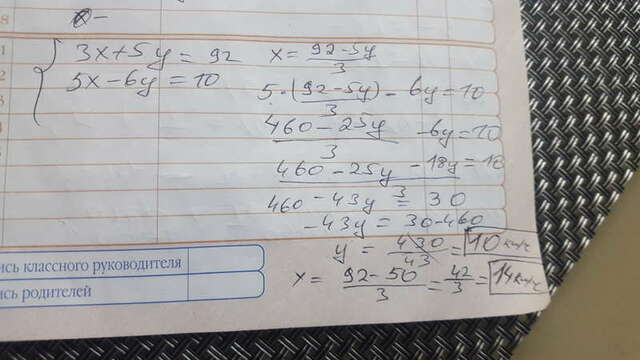 3x+5y=92
5x-6y=10
x=\frac{92-5y}{3}
5·\frac{(92-5y)}{3}-6y=10
\frac{460-25y}{3}-6y=10
\frac{460-25y-18y}{3}=10
460-43y=30
-43y=30-460
y=\frac{430}{43}=10км/ч
x=\frac{92-50}{3}=\frac{42}{3}=14км/ч
ись классного руководителя
ись родителей